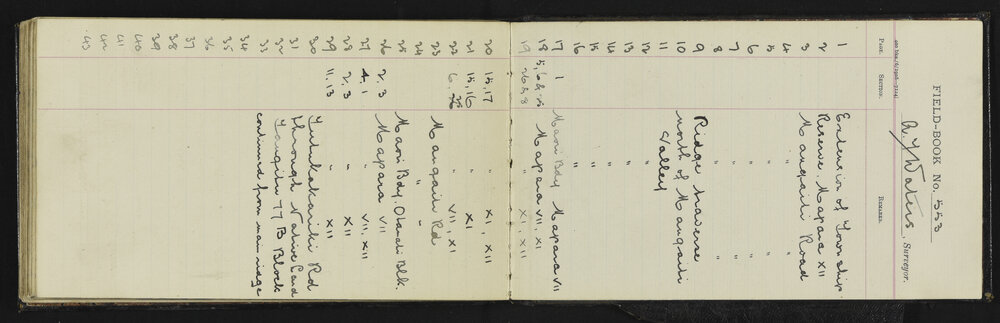 FIELD-BOOK No. 553
A. J. Waters, Surveyor.
PAGE. SECTION. REMARKS.
1 Extension of Township
2 Reserve. Mapara XII
3 Mangaiti Road
4 " "
5 " "
6 " "
7 " "
8 " "
9 Ridge traverse
10 north of Mangaiti
11 Valley
12 "
13 "
14 "
15 "
16 "
17 1 Maori Bdy Mapara VII
18 Mapara VII, XI
19 " XI, XII
20 15, 17 " XI, XII
21 15, 16 " XI
22 " VII, XI
23 Mangaiti Rd
24 " "
25 Maori Bdy. Blk.
26 2, 3 Mapara VII
27 4, 1 " VII, XII
28 2, 3 " XII
29 11, 13 " XII
30 Rd
31 through Native Land
32 77 B Block
33 continued from main ridge
34
35
36
37
38
39
40
41
42
43